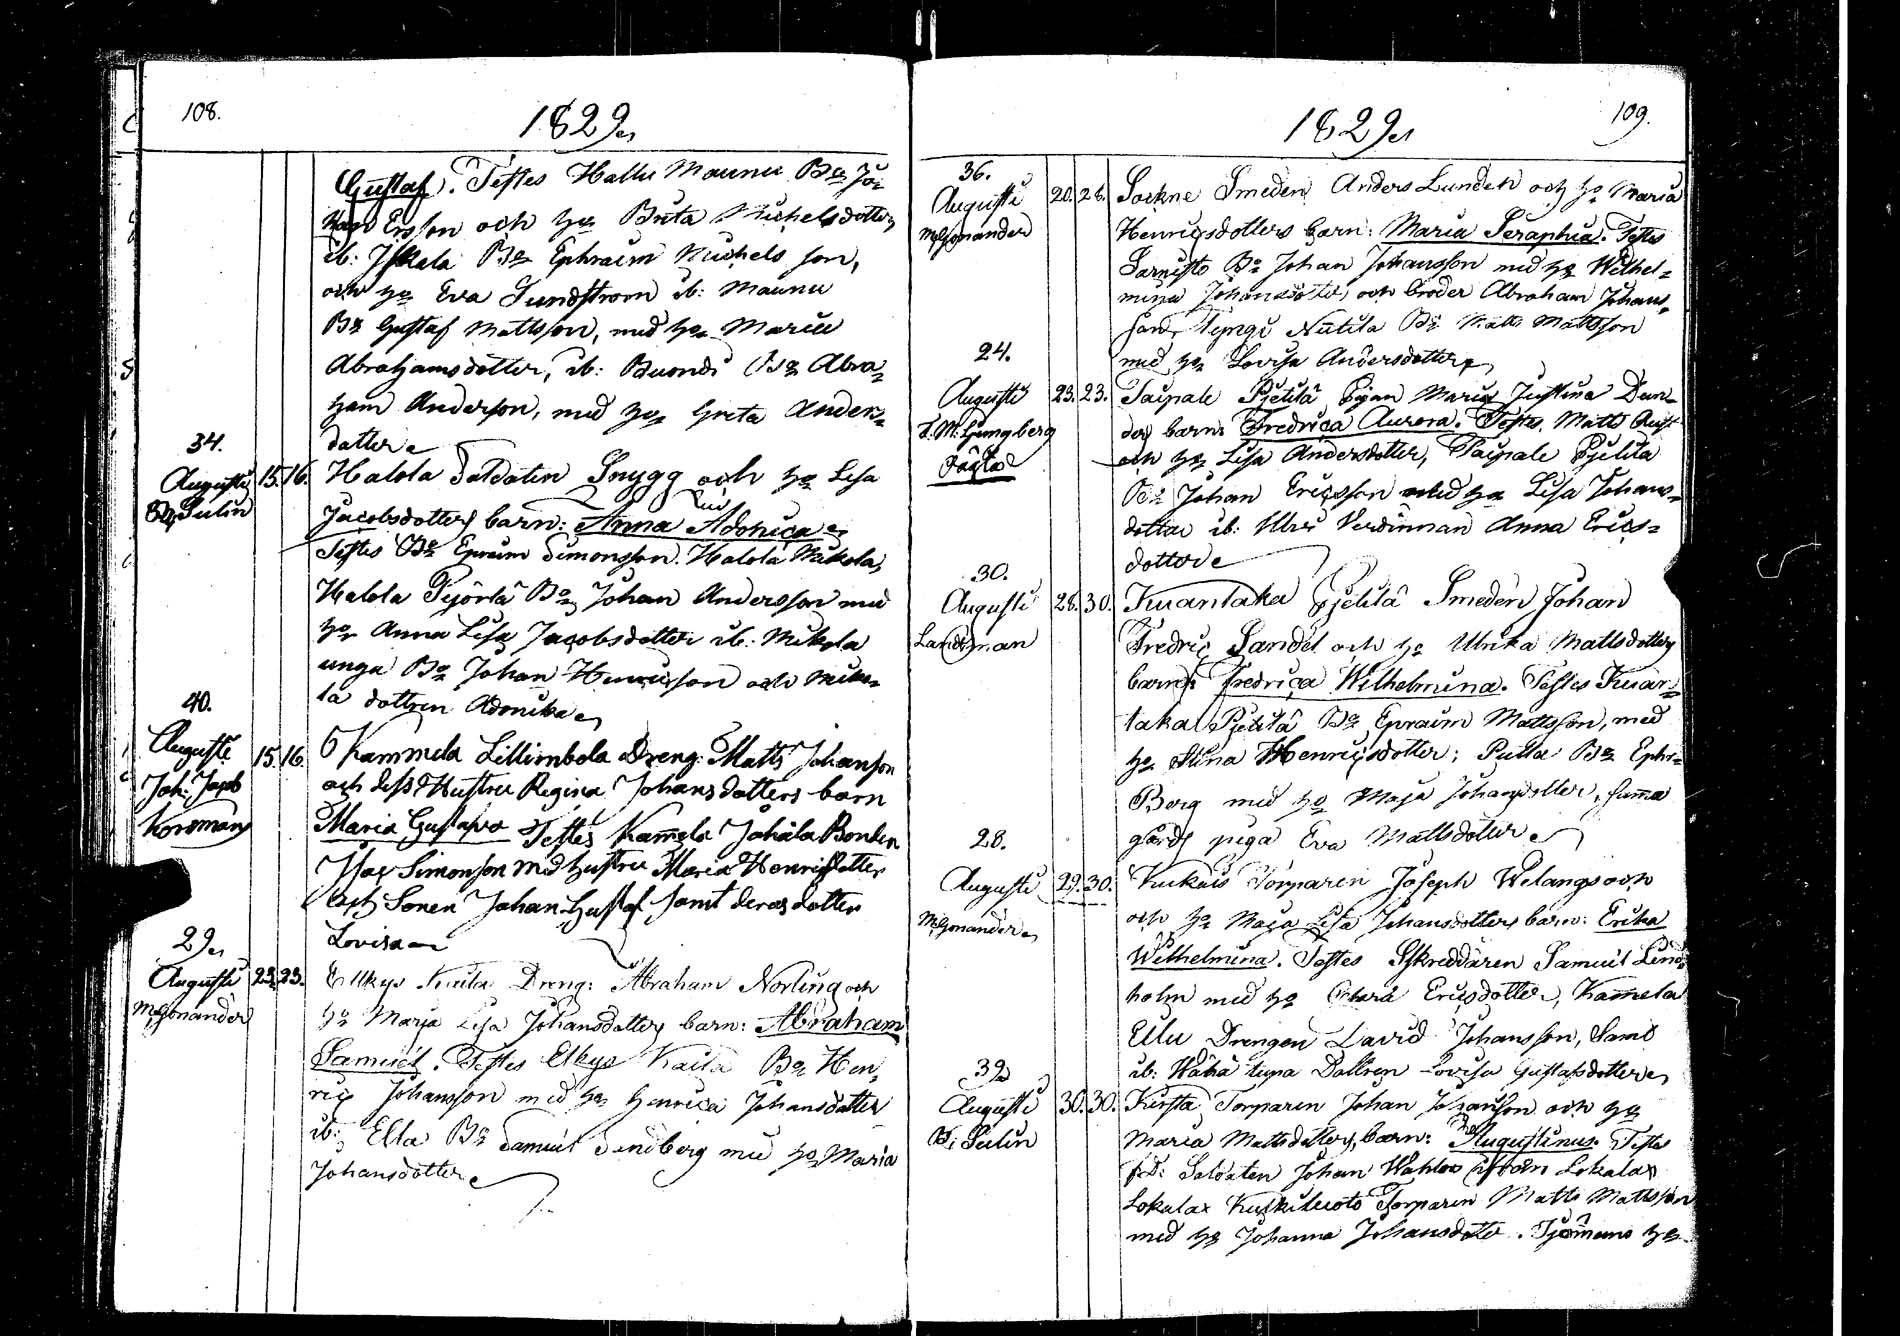 108.
1829
Gustaf. Testes Hallu Maunu Bn Jo-
han Ersson och hn Brita Michelsdotter,
ib: Iskala Bn Ephraim Michels son,
och hn Eva Sundstrom ib: Maunu
Bn Gustaf Mattsson, med hn Maria
Abrahamsdotter, ib: Buondi Bn Abra-
ham Anderson, med hn Greta Anders-
dotter
34.
Augusti 15. 16. Halola Soldaten Snygg och hn Lisa
Sulin Jacobsdotters barn: Anna Adonica
Testes Bn Epraim Simonsson. Halola Mikola,
Halola Pijörlä Bn Johan Andersson med
hn Anna Lisa Jacobsdotter ib: Mikola
unga Bn Johan Henricsson och Miko-
la dottren Adonika
40.
Augusti 15. 16. Kammela Lillimbola Dreng: Matts Johanson
Joh: Jacob och dess Hustru Regina Johansdotters barn
Korsman Maria Gustava Testes Kamela Jahala Bonden
Isac Simonson med hustru Maria Henricsdotter
och Sonen Johan Gustaf samt deras dotter
Lovisa
29.
Augusti 23. 23. Elkys Kaila Dreng: Abraham Norling och
M. Gonander hn Marja Lisa Johansdotters barn: Abraham
Samuel. Testes Elkys Kaila Bn Hen-
ric Johansson med hn Henrica Johansdotter
ib: Ella Bn Samuel Sendberg med hn Maria
Johansdotter
109.
1829
36.
Augusti 20. 26. Sockne Smeden Anders Lunden och hn Maria
M. Gonander Henricsdotters barn: Maria Seraphia. Testes
Sarnisto Bn Johan Johansson med hn Wilhel-
mina Johansdotter och broder Abraham Johans-
son, Nutila Bn Matts Mattsson
med hn Lovisa Andersdotter
24.
Augusti 23. 23. Taipale Pjelitä Pigan Maria Justina Dan-
Ljungberg ders barn: Fredrica Aurora. Testes, Matts
och hn Lisa Andersdotter, Taipale Pjelitä
Bn Johan Ericsson med hn Lisa Johans-
dotter ib: Verdinnan Anna Erics-
dotter
30.
Augusti 28. 30. Kuantaka Pjelitä Smeden Johan
Landtman Fredric Sandel och hn Ulrika Mattsdotters
barn: Fredrica Wilhelmina. Testes Kuan-
taka Pjelitä Bn Epraim Mattsson, med
hn Stina Henricsdotter; Pulla Bn Ephr:
Berg med hn Maja Johansdotter, samma
gårds piga Eva Mattsdotter
28.
Augusti 29. 30. Kukais Torparen Joseph Welangs och
M. Gonander och hn Maja Lisa Johansdotters barn: Erika
Wilhelmina. Testes Skreddaren Samuel Lind-
holm med hn Ericsdotter, Kamela
Ellu Drengen David Johansson, Samt
ib: Wähä tupa Dottren Lovisa Gustafsdotter
39
Augusti 30. 30. Kirsta Torparen Johan Johanson och hn
Sulin Maria Mattsdotters, barn: Augustinus. Testes
f.d: Soldaten Johan Wahlro ifrån Lokalax
Lokalax Kuskiluoto Torparen Matts Mattsson
med hn Johanna Johansdotter.